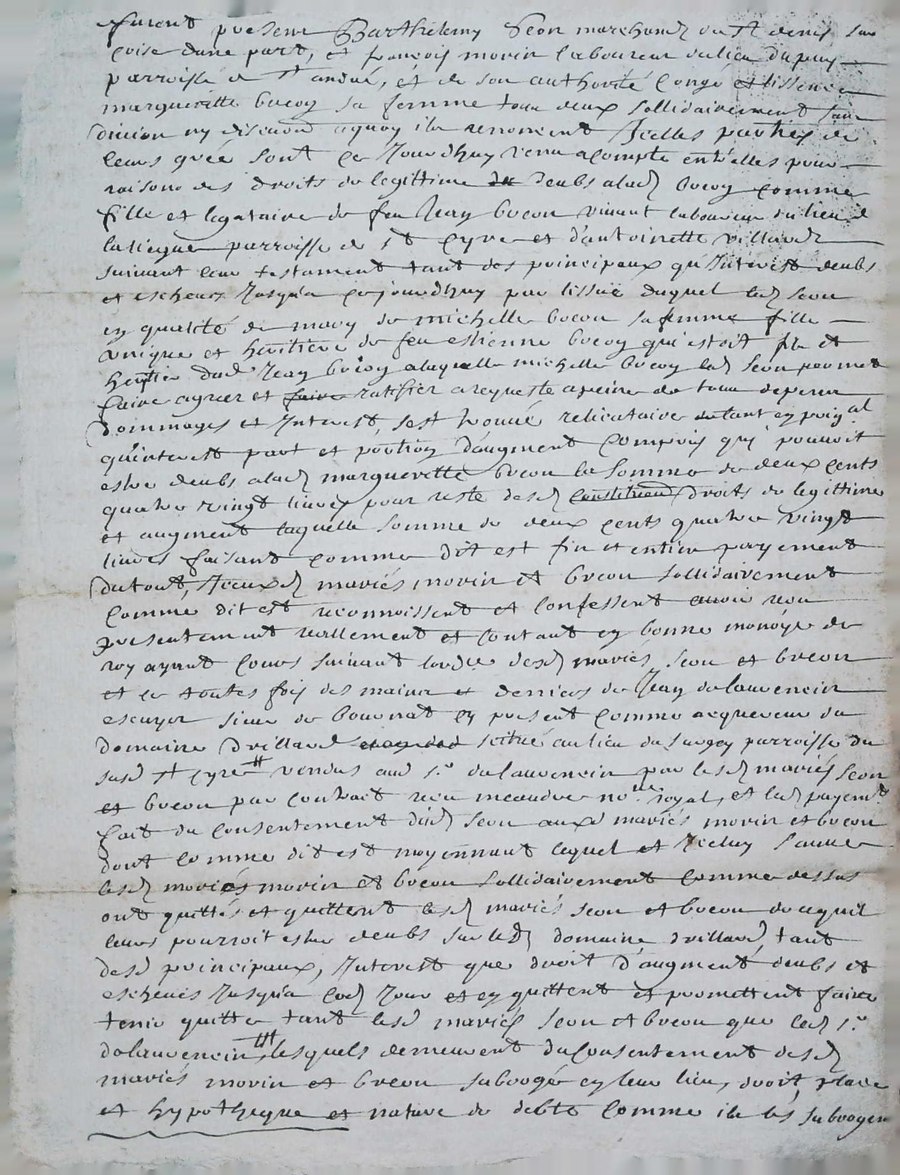 furent presens Barthelemy Seon marchand du St denis sur
coise dune part, et françois morin laboureur du lieu du puy
parroisse de St andré, et de son authorité congé et lissence
marguerite bucon sa femme tous deux sollidairement sans
division ny discution aquoy ils renoncent Icelles parties de
leurs gréé sont ce Jourdhuy venu acompte entrelles pour
raisons des droits de legittime deubs alad bucon comme
fille et legataire de feu Jean bucon vivant laboureur du lieu de
parroisse de st cyre et d'antoinette villard
suivant leur testament tant des principaux qu'Interest deubs
et escheus Jusqu'a cejourdhuy par lissüe duquel led seon
en qualité de mary de michelle bucon sa femme fille
unique et heritiere de feu estienne bucon qui estoit fils et
heritier dud Jean bucon alaquelle michelle bucon led seon promet
faire agreer et faire ratifier arequeste apeine de tous depens
dommages et Interest, sest trouvé relicataire tant en poinçal
qu'interest part et portion d'augment compris qui pouvoit
estre deubs alad marguerite bucon la somme de deux cents
quatre vingt livres pour reste desd constitution droits de legittime
et augment laquelle somme de deux cents quatre vingt
livres faisant comme dit est fin et entier payement
du tout, Iceux d mariés morin et bucon sollidairement
comme dit est reconnoissent et confessent avoir reçu
presentement reellement et contant en bonne monoye de
roy ayant cours suivant lordre desd mariés seon et bucon
et ce toutes fois des mains et deniers de Jean de lauvencin
escuyer sieur de bouvnat cy present comme acquereur du
domaine d villard scitué au lieu du parroisse du
susd st cyre vendus aud sr. de lauvencin par lesd mariés seon
et bucon par contrait reçu meaudre nore royal, et led payemt
fait du consentement dud seon auxd mariés morin et bucon
dont comme dit est moyennant lequel et Iceluy
lesd mariés morin et bucon sollidairement comme dessus
ont quittés et quittent lesd mariés seon et bucon de ce quil
leurs pourroit estre deubs sur led domaine d villard, tant
desd principaux, Interest que droit d'augment deubs et
escheus Jusqu'a ced Jour et en quittent et promettent faire
tenir quitte tant lesd mariés seon et bucon que led sr.
delauvencin, lesquels demeurent du consentement desd
mariés morin et bucon subrogé en leur lieu, droit, place
et hypotheque et nature de debte comme ils les subrogent